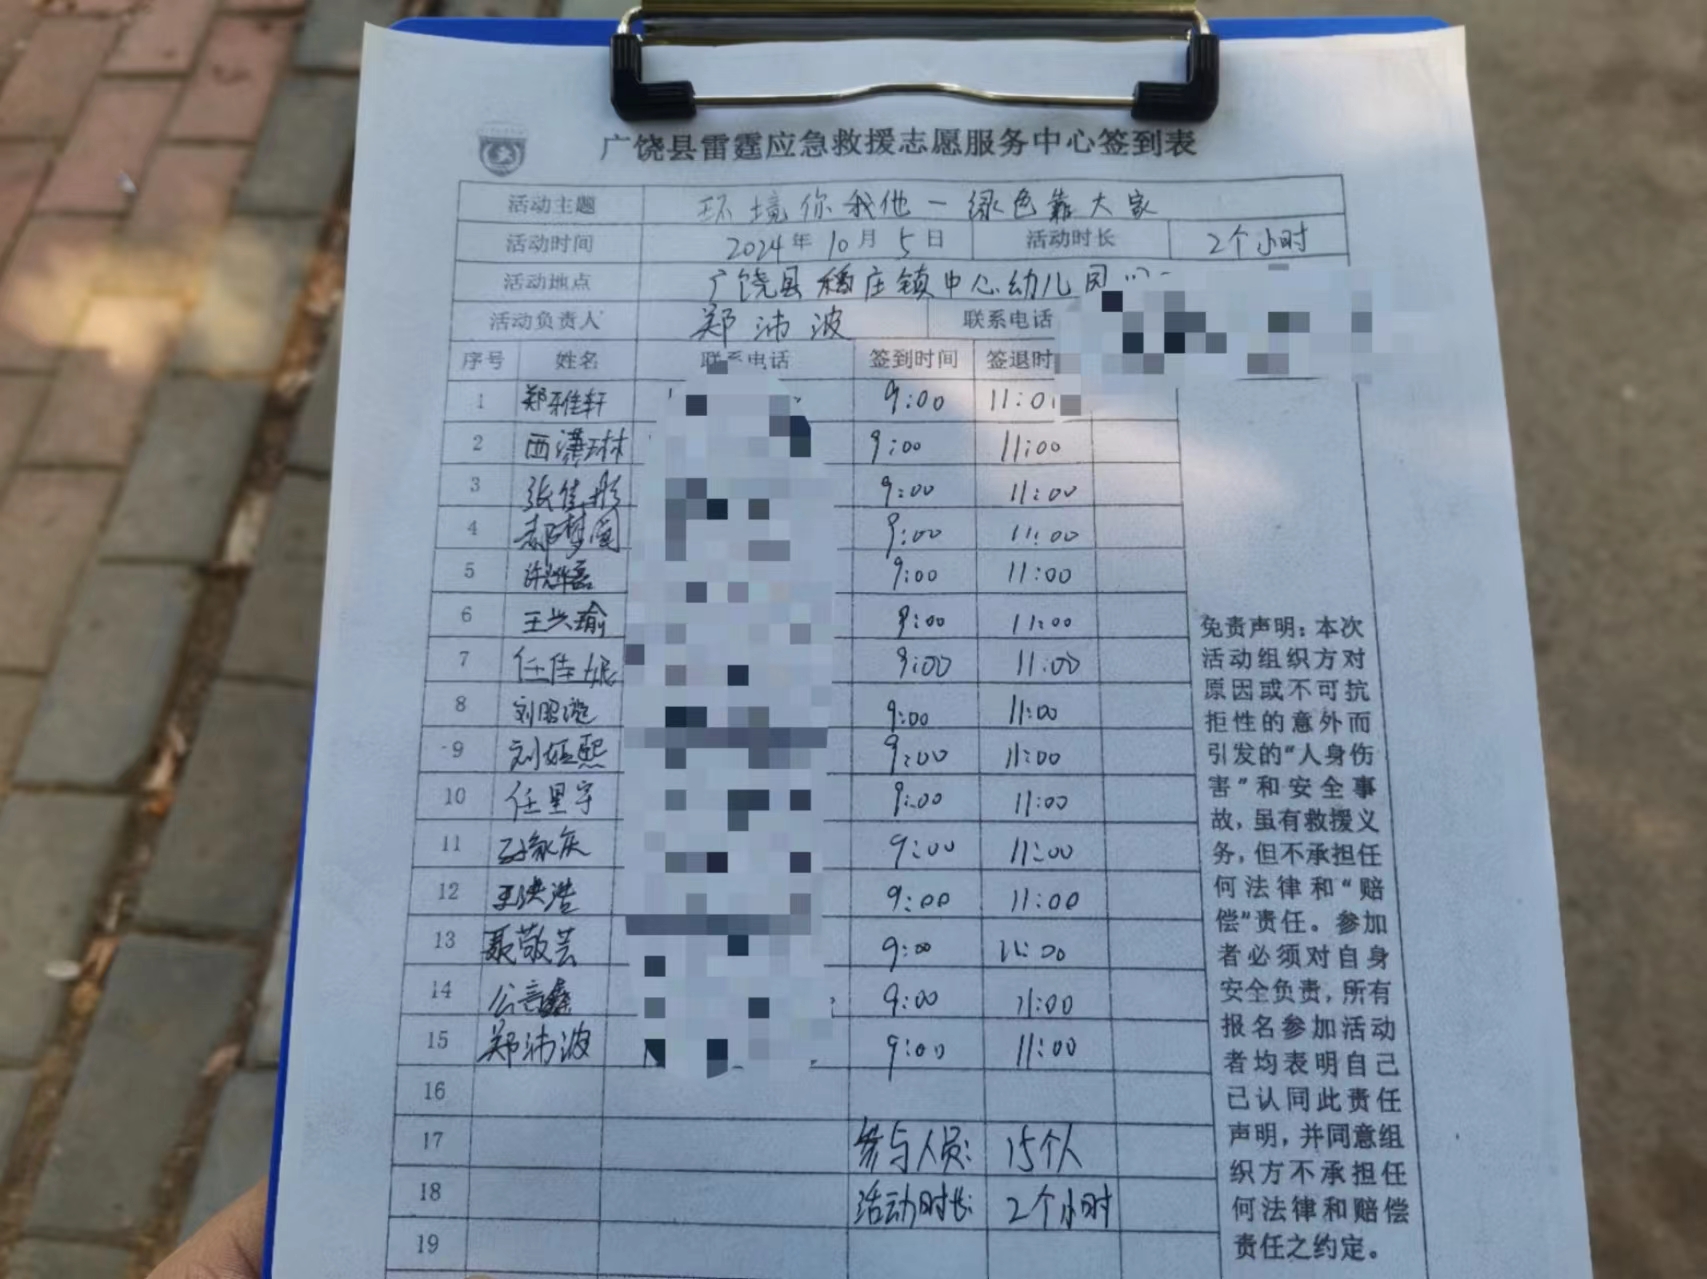 广饶县雷霆应急救援志愿服务中心签到表
活动主题 环境你我他一绿色靠大家
活动时间 2024年10月5日 活动时长 2个小时
活动地点 广饶县稻庄镇中心幼儿园
活动负责人 郑沛波 联系电话
序号 姓名 联系电话 签到时间 签退时
1 郑雅轩 9:00 11:0
2 西潇琳 9:00 11:00
3 张佳彤 9:00 11:00
4 郝梦圆 9:00 11:00
5 磊 9:00 11:00
6 王兴瑜 9:00 11:00
7 任佳妮 9:00 11:00
8 刘昭漩 9:00 11:00
9 刘 熙 9:00 11:00
10 任星宇 9:00 11:00
11 9:00 11:00
12 浩 9:00 11:00
13 聂敬芸 9:00 11:00
14 公 9:00 11:00
15 郑沛波 9:00 11:00
16
17 参与人员: 15个人
18 活动时长: 2个小时
19
免责声明:本次
活动组织方对
原因或不可抗
拒性的意外而
引发的“人身伤
害”和安全事
故,虽有救援义
务,但不承担任
何法律和“赔
偿”责任。参加
者必须对自身
安全负责,所有
报名参加活动
者均表明自己
已认同此责任
声明,并同意组
织方不承担任
何法律和赔偿
责任之约定。